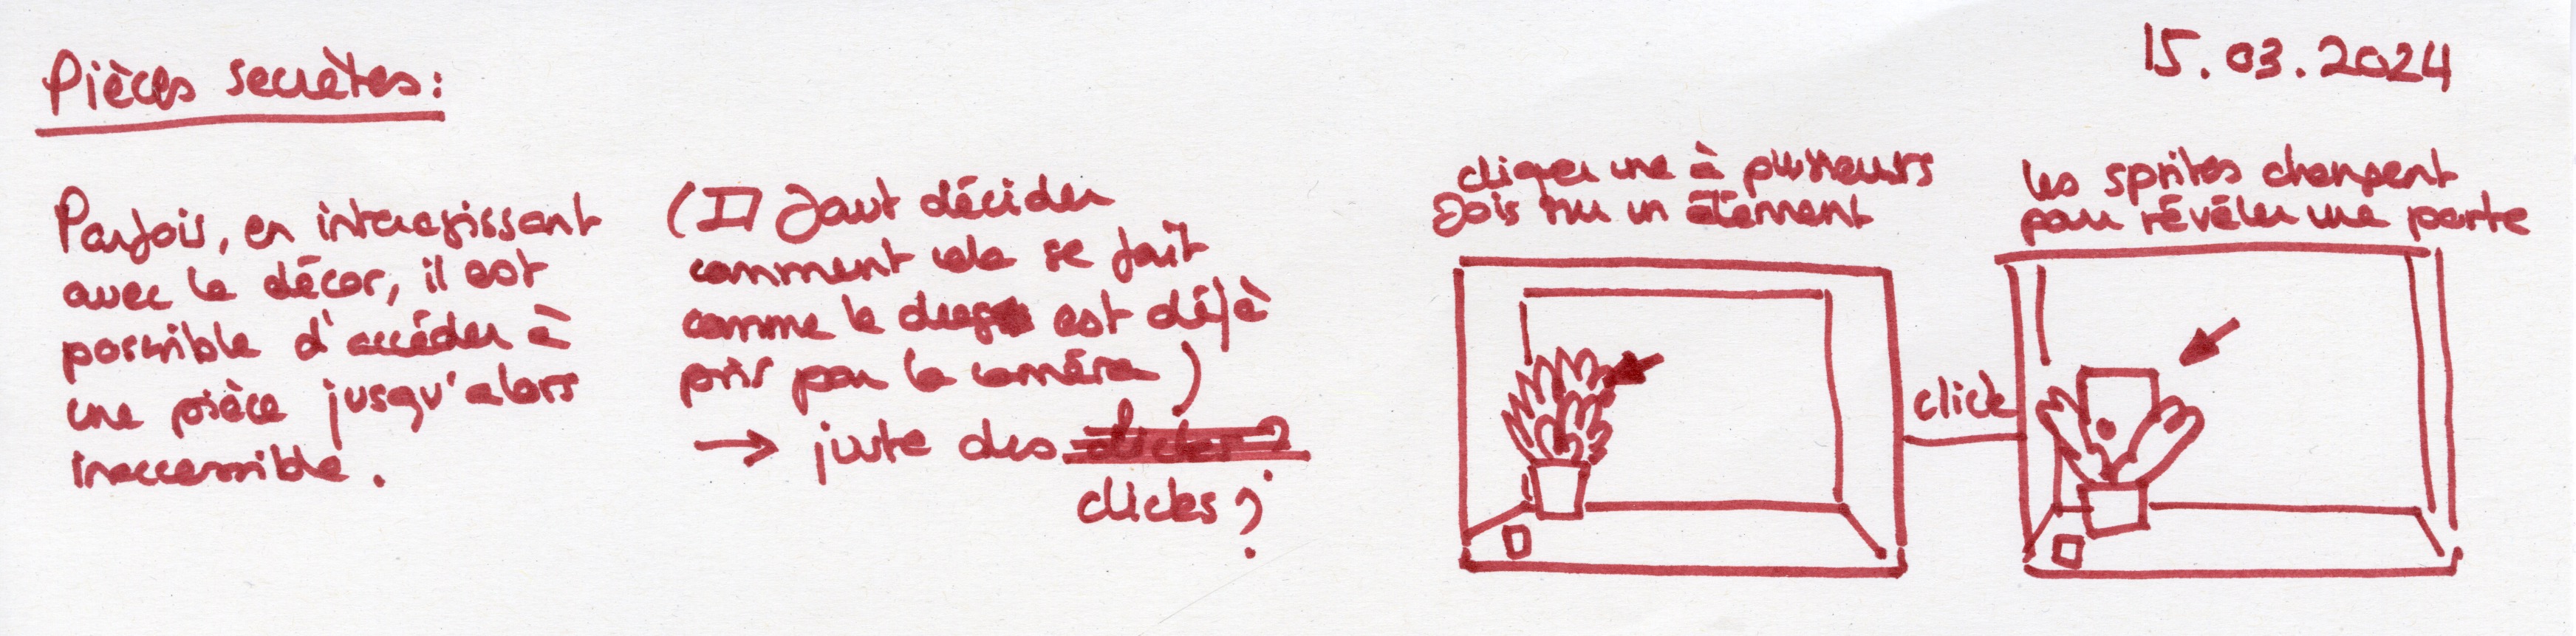 Pièces secrètes:
15.03.2024
Parfois, en interagissant
avec le décor, il est
possible d'accéder à
une pièce jusqu'alors
inaccessible.
(Il faut décider
comment cela se fait
comme le drag est déjà
pris par la caméra)
→ juste des
clicks?
cliquer une à plusieurs
fois sur un élément
click
les sprites changent
pour révéler une porte